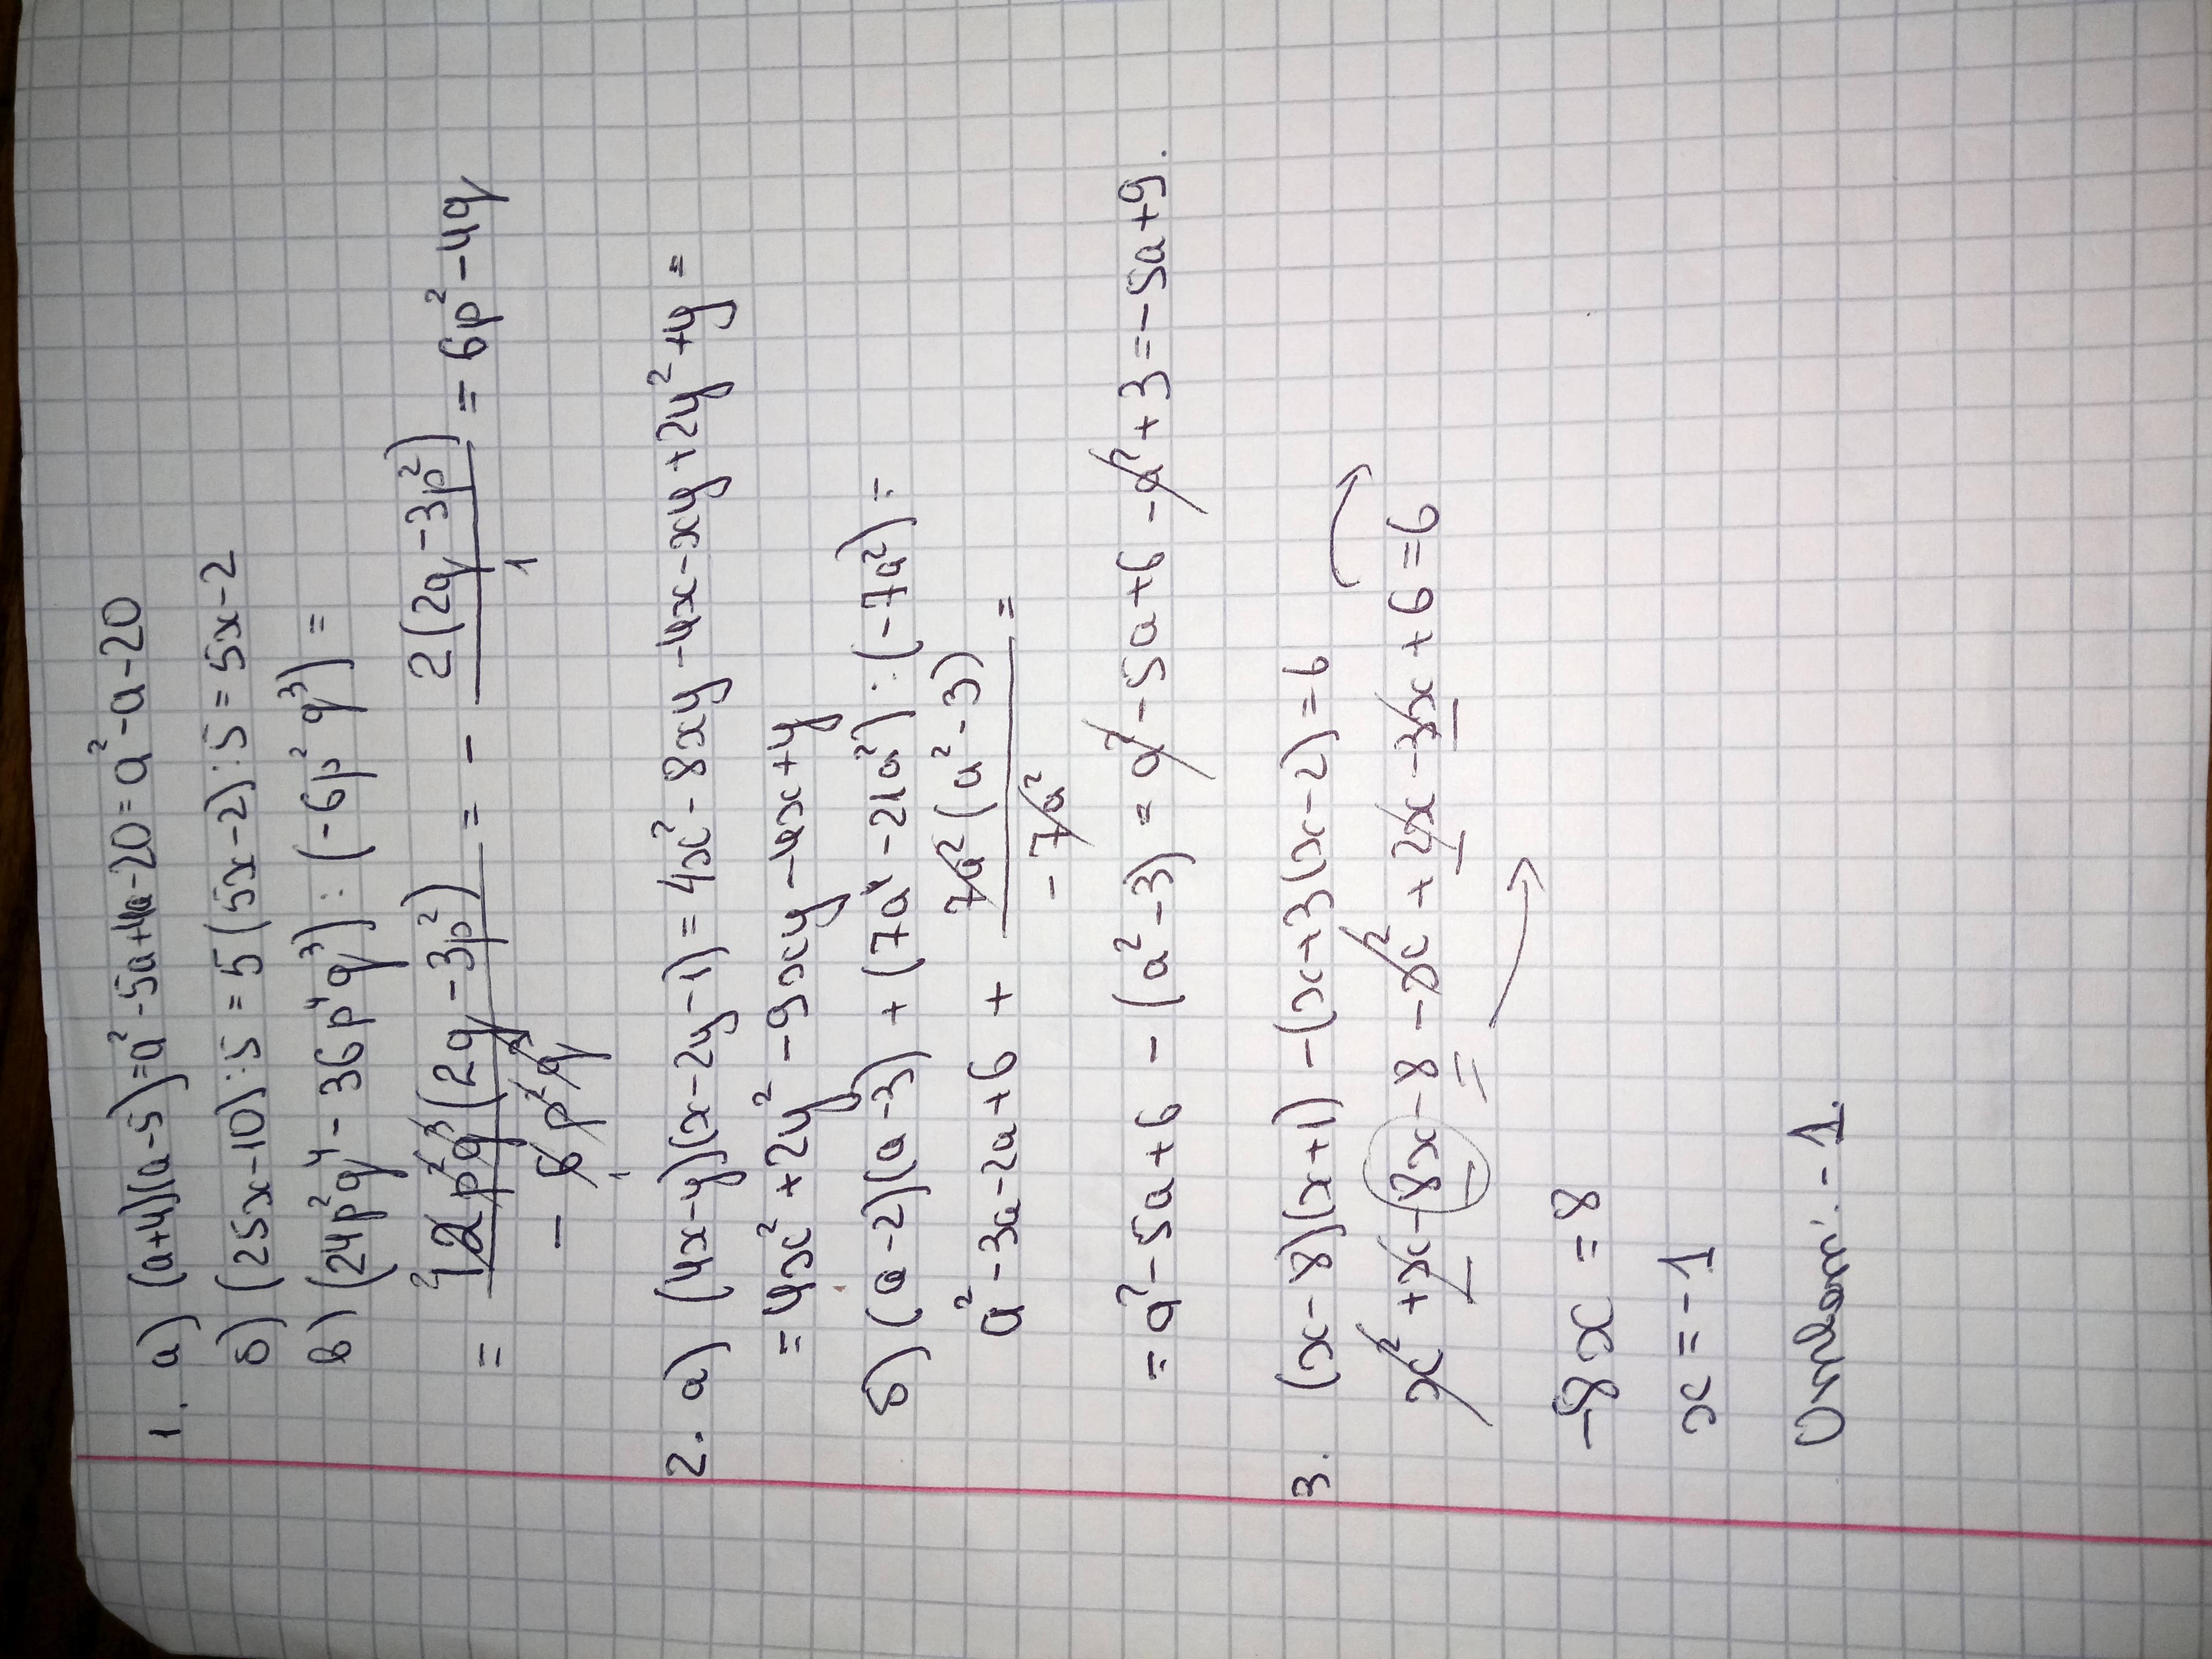 1. а) (a+4)(a-5)=a²-5a+4a-20=a²-a-20
б) (25x-10):5=5(5x-2):5=5x-2
в) (24p²q⁴-36p⁴q³):(-6p²q³)=
= 12p²q³(2q-3p²) / -6p²q³ = - 2(2q-3p²) / 1 = 6p²-4q
2. а) (4x-y)(x-2y-1)=4x²-8xy-4x-xy+2y²+y=
=4x²+2y²-9xy-4x+y
б) (a-2)(a-3)+(7a⁴-21a²):(-7a²)=
a²-3a-2a+6 + 7a²(a²-3) / -7a² =
=a²-5a+6-(a²-3)=a²-5a+6-a²+3=-5a+9.
3. (x-8)(x+1)-(x+3)(x-2)=6
x²+x-8x-8-x²+2x-3x+6=6
-8x=8
x=-1
Ответ: -1.